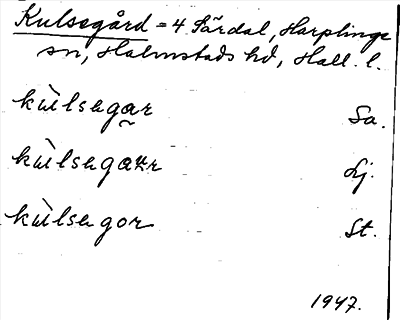 Kulsegård = 4 Särdal, Harplinge
sn, Halmstads hd, Hall. l.
kùlsegar Sa.
kùlsegaʀr Lj.
kùlsegor St.
1947.